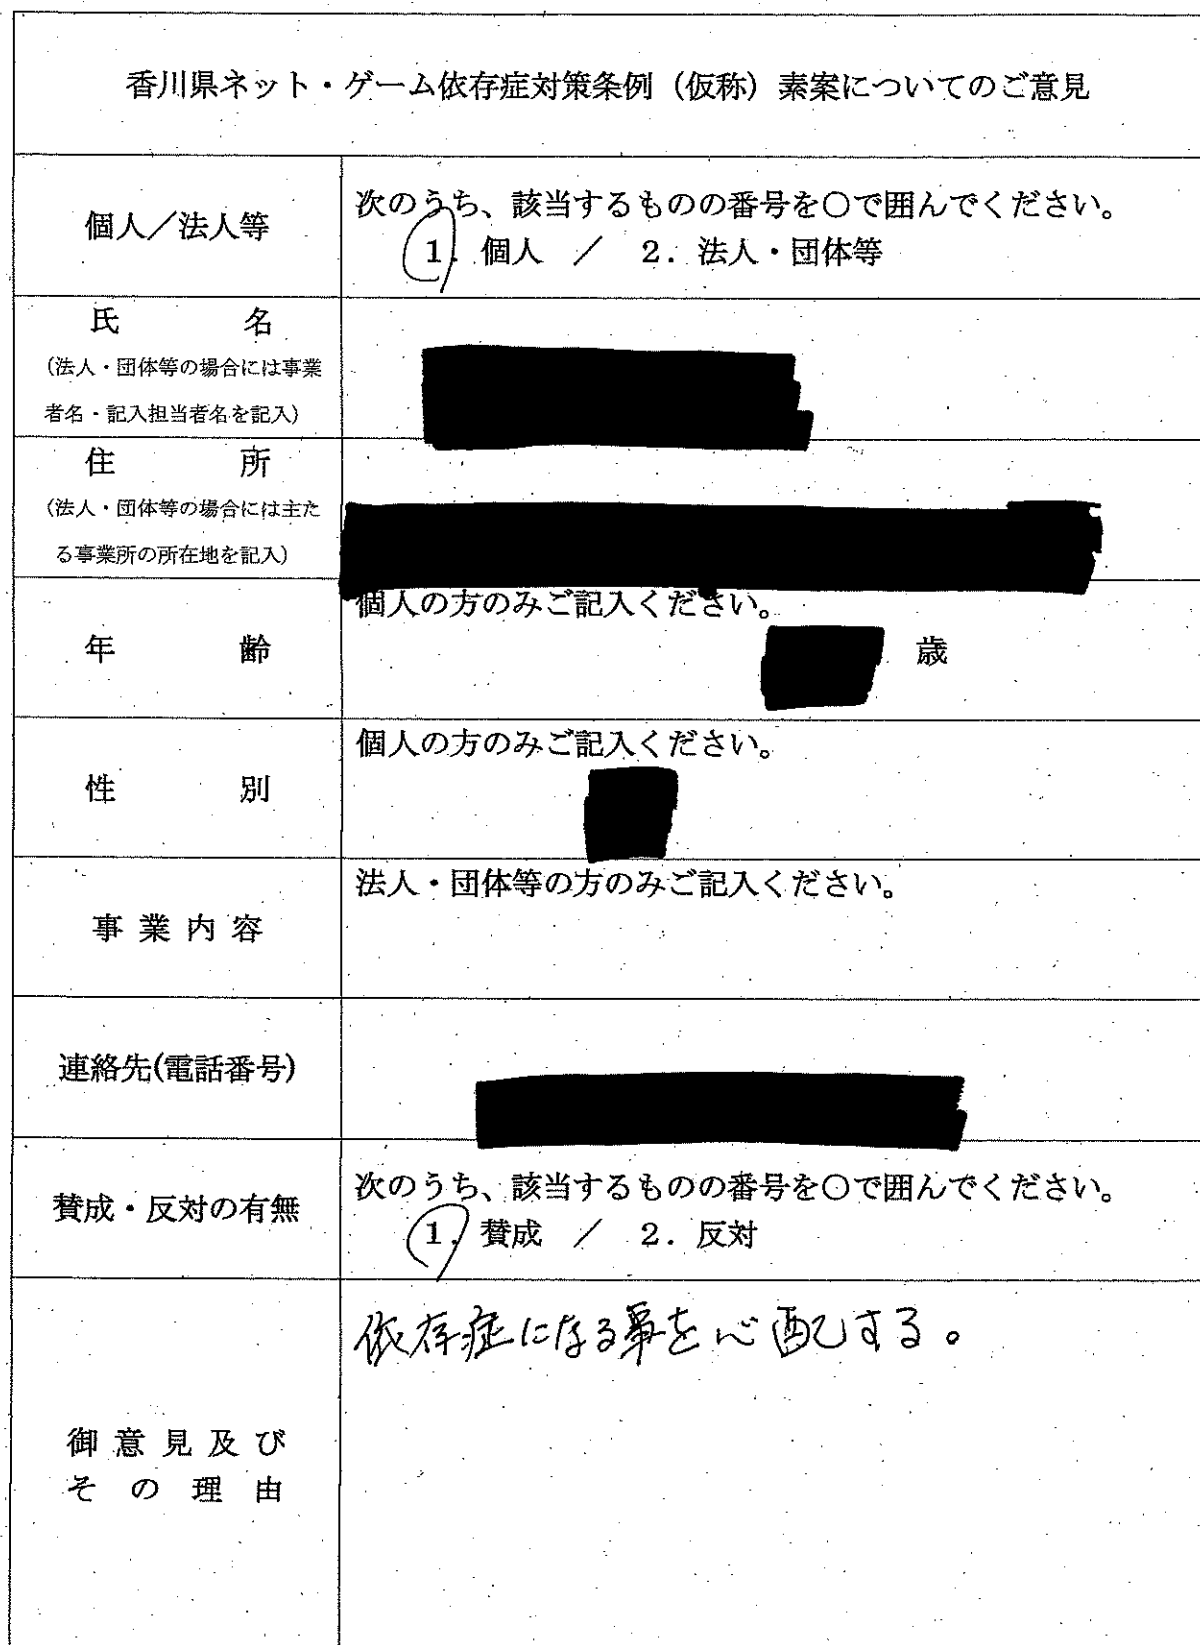 香川県ネット・ゲーム依存症対策条例（仮称）素案についてのご意見
個人／法人等
次のうち、該当するものの番号を○で囲んでください。
1．個人 ／ 2．法人・団体等
氏 名
（法人・団体等の場合には事業
者名・記入担当者名を記入）
住 所
（法人・団体等の場合には主た
る事業所の所在地を記入）
個人の方のみご記入ください。
年 齢
歳
個人の方のみご記入ください。
性 別
法人・団体等の方のみご記入ください。
事業内容
連絡先(電話番号)
賛成・反対の有無
次のうち、該当するものの番号を○で囲んでください。
1．賛成 ／ 2．反対
依存症になる事を心配する。
御意見及び
その理由